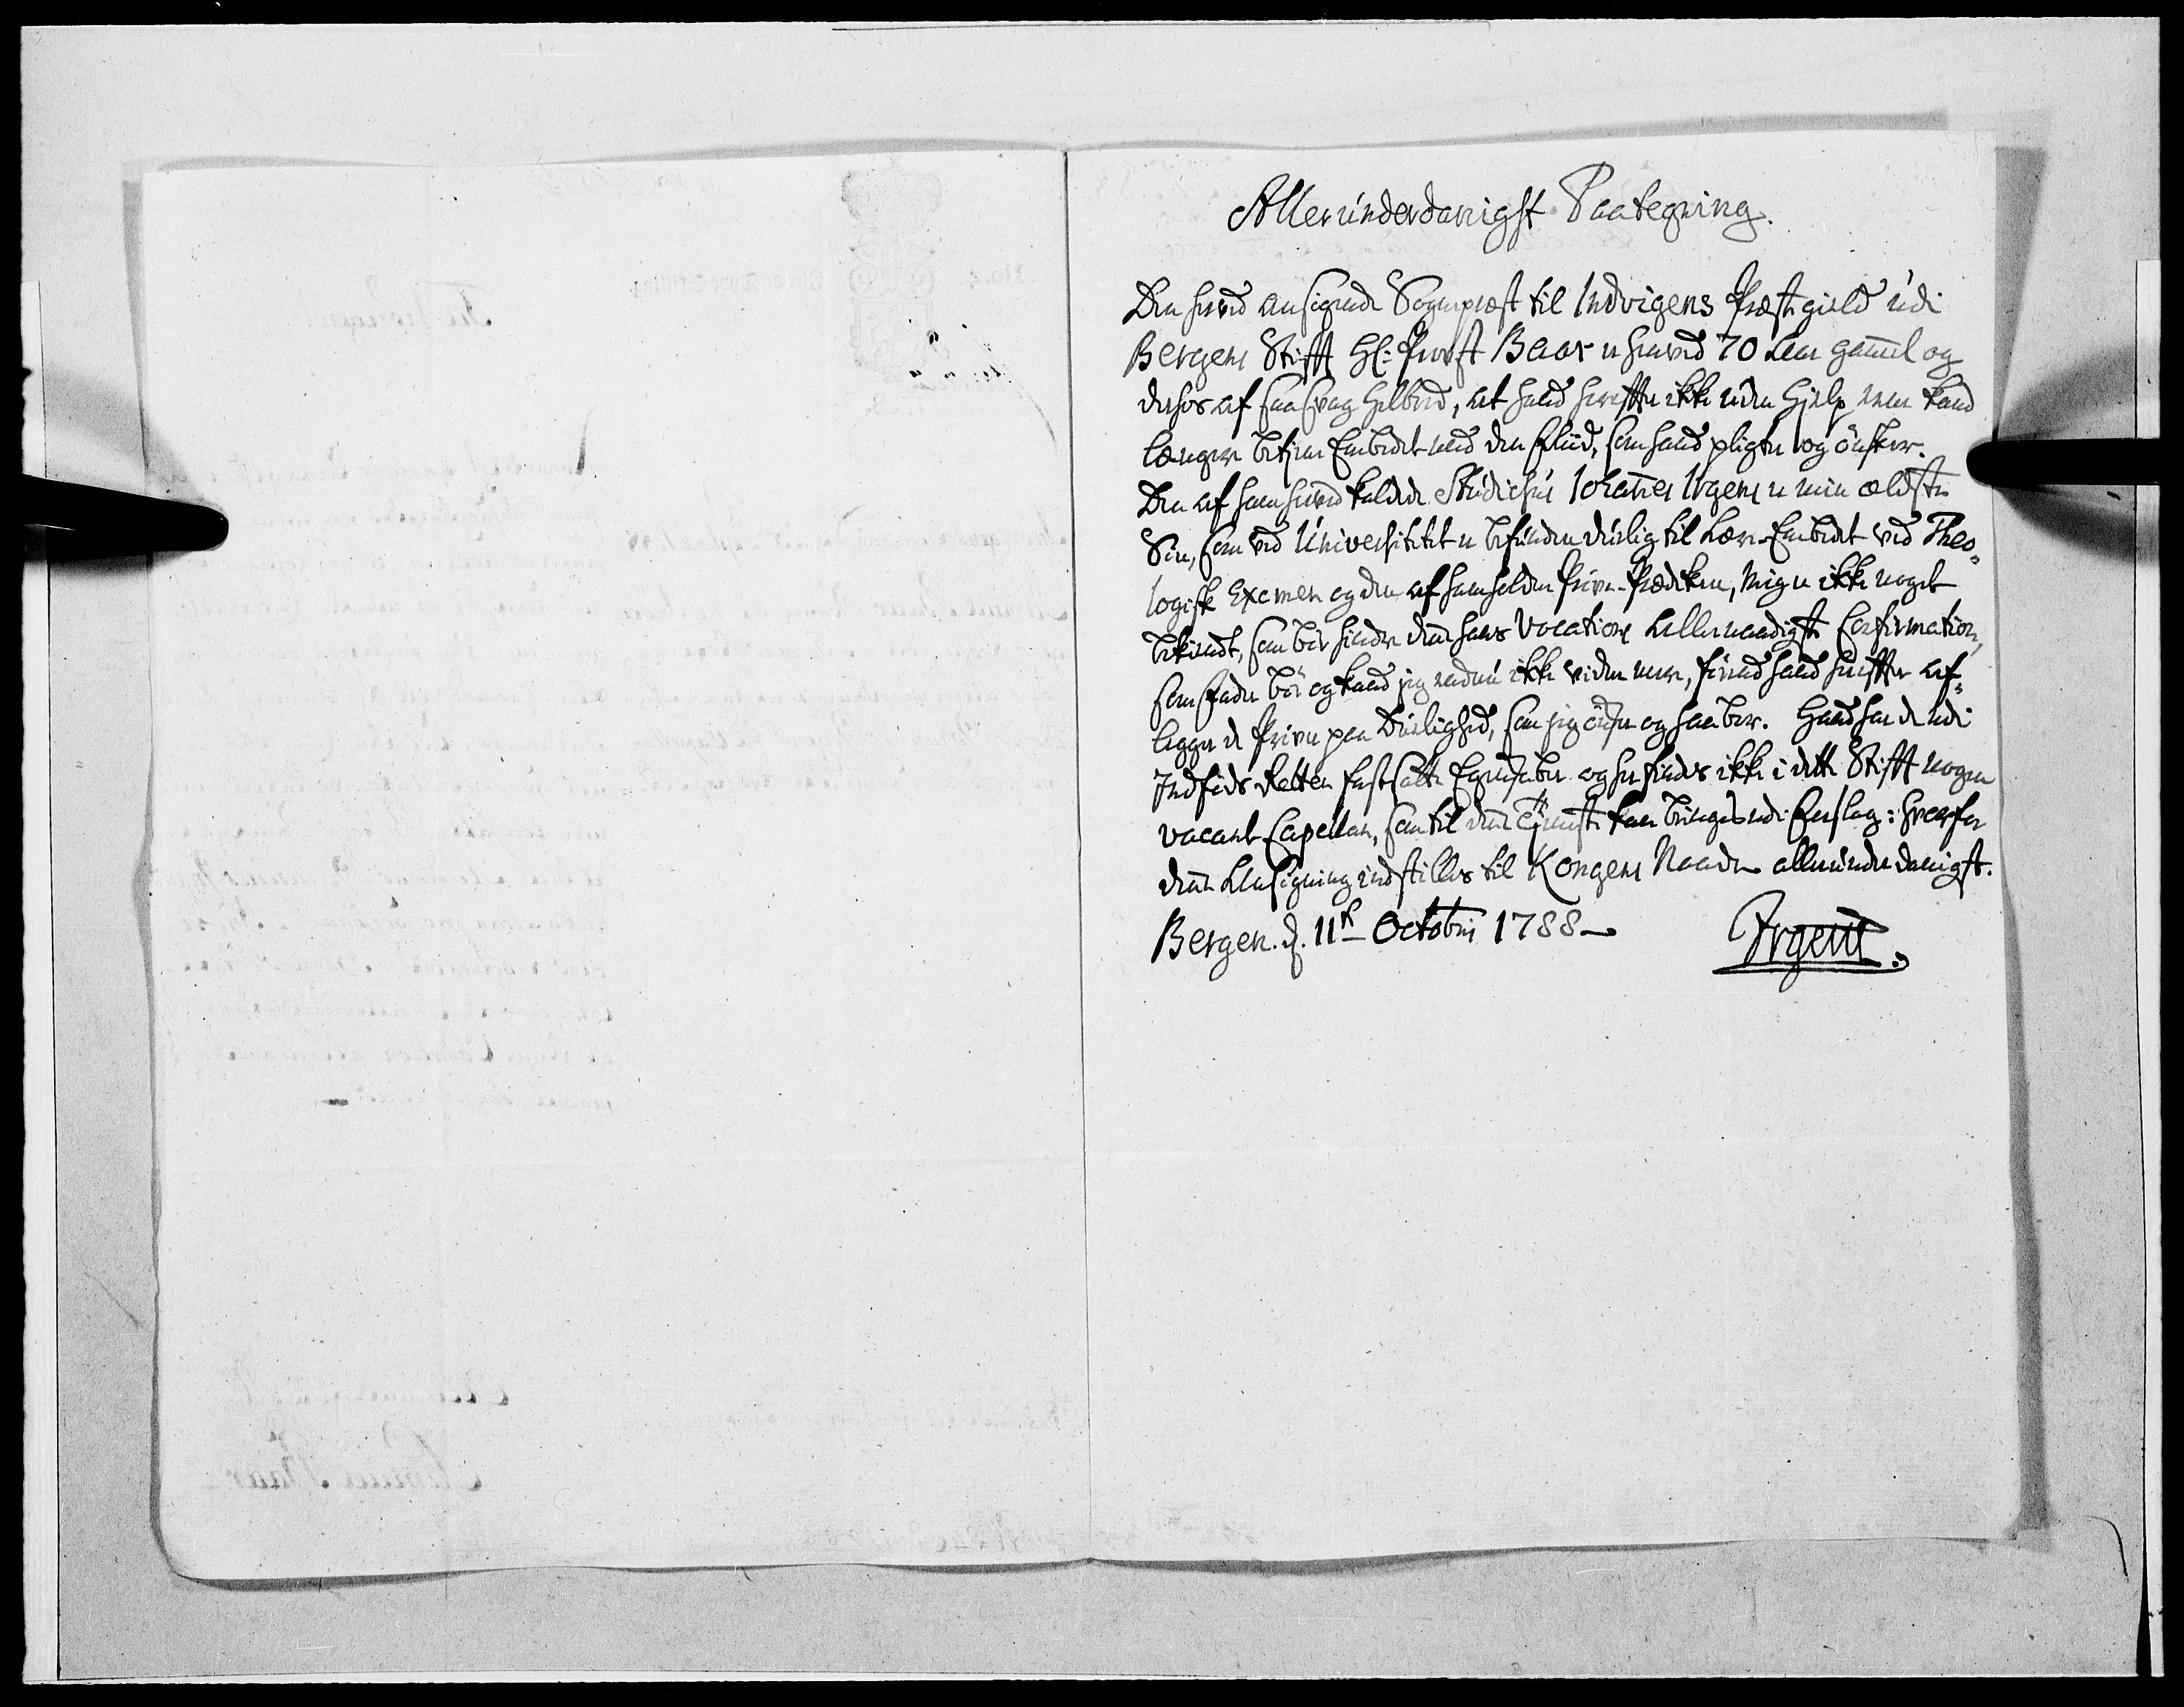 Allerunderdanigst Paategning.
Den herved ansøgende Sognepræst til Indvigens Præstegield udi
Bergens Stifft Hr: Provst Baar er henved 70 Aar gammel og
derhos af saa svag Helbred, at hand herefter ikke uden Hjelp meer kand
længere betiene Embedet med den Fliid, som hand pligter og ønsker.
Den af ham herved kaldede Studiosus Iohannes Irgens er min ældste
Søn, som ved Universitetet er befunden duelig til Lære-Embedet ved Theo-
logisk Examen og den af ham holdne Prøve-Prædiken, mig er ikke noget
bekiendt, som bør hindre denne hans Vocations allernaadigste Confirmation,
som Fader bør og kand jeg endnu ikke vidne mere, førend hand herefter af-
legger de Prøver paa Duelighed, som jeg ønsker og haaber. Hand har de udi
Indføds Retten fastsatte Egenskaber og her findes ikke i dette Stifft nogen
vacant Capellan, som til denne Tjeneste kan bringes udi Forslag: hvorfor
denne Ansøgning indstilles til Kongens Naade allerunderdanigst.
Bergen. d. 11te Octobris 1788
Irgens.